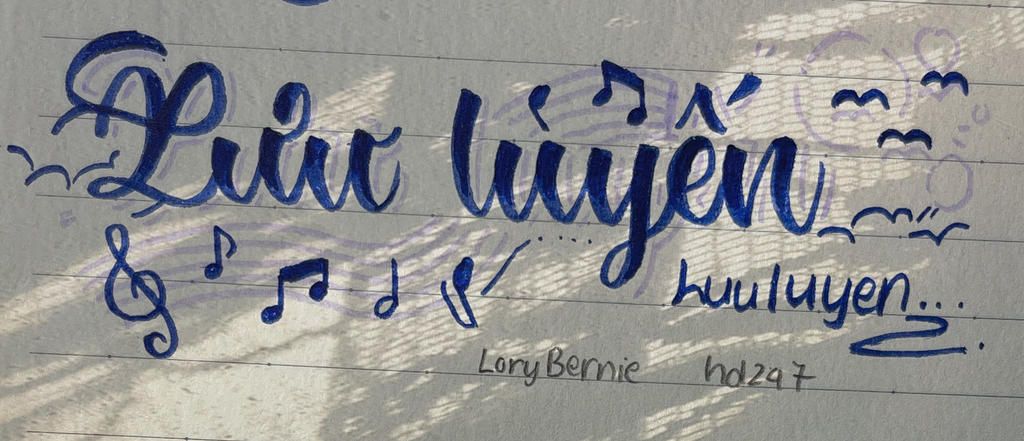 Lưu luyến
Luuluyen...
LoryBernie hd247